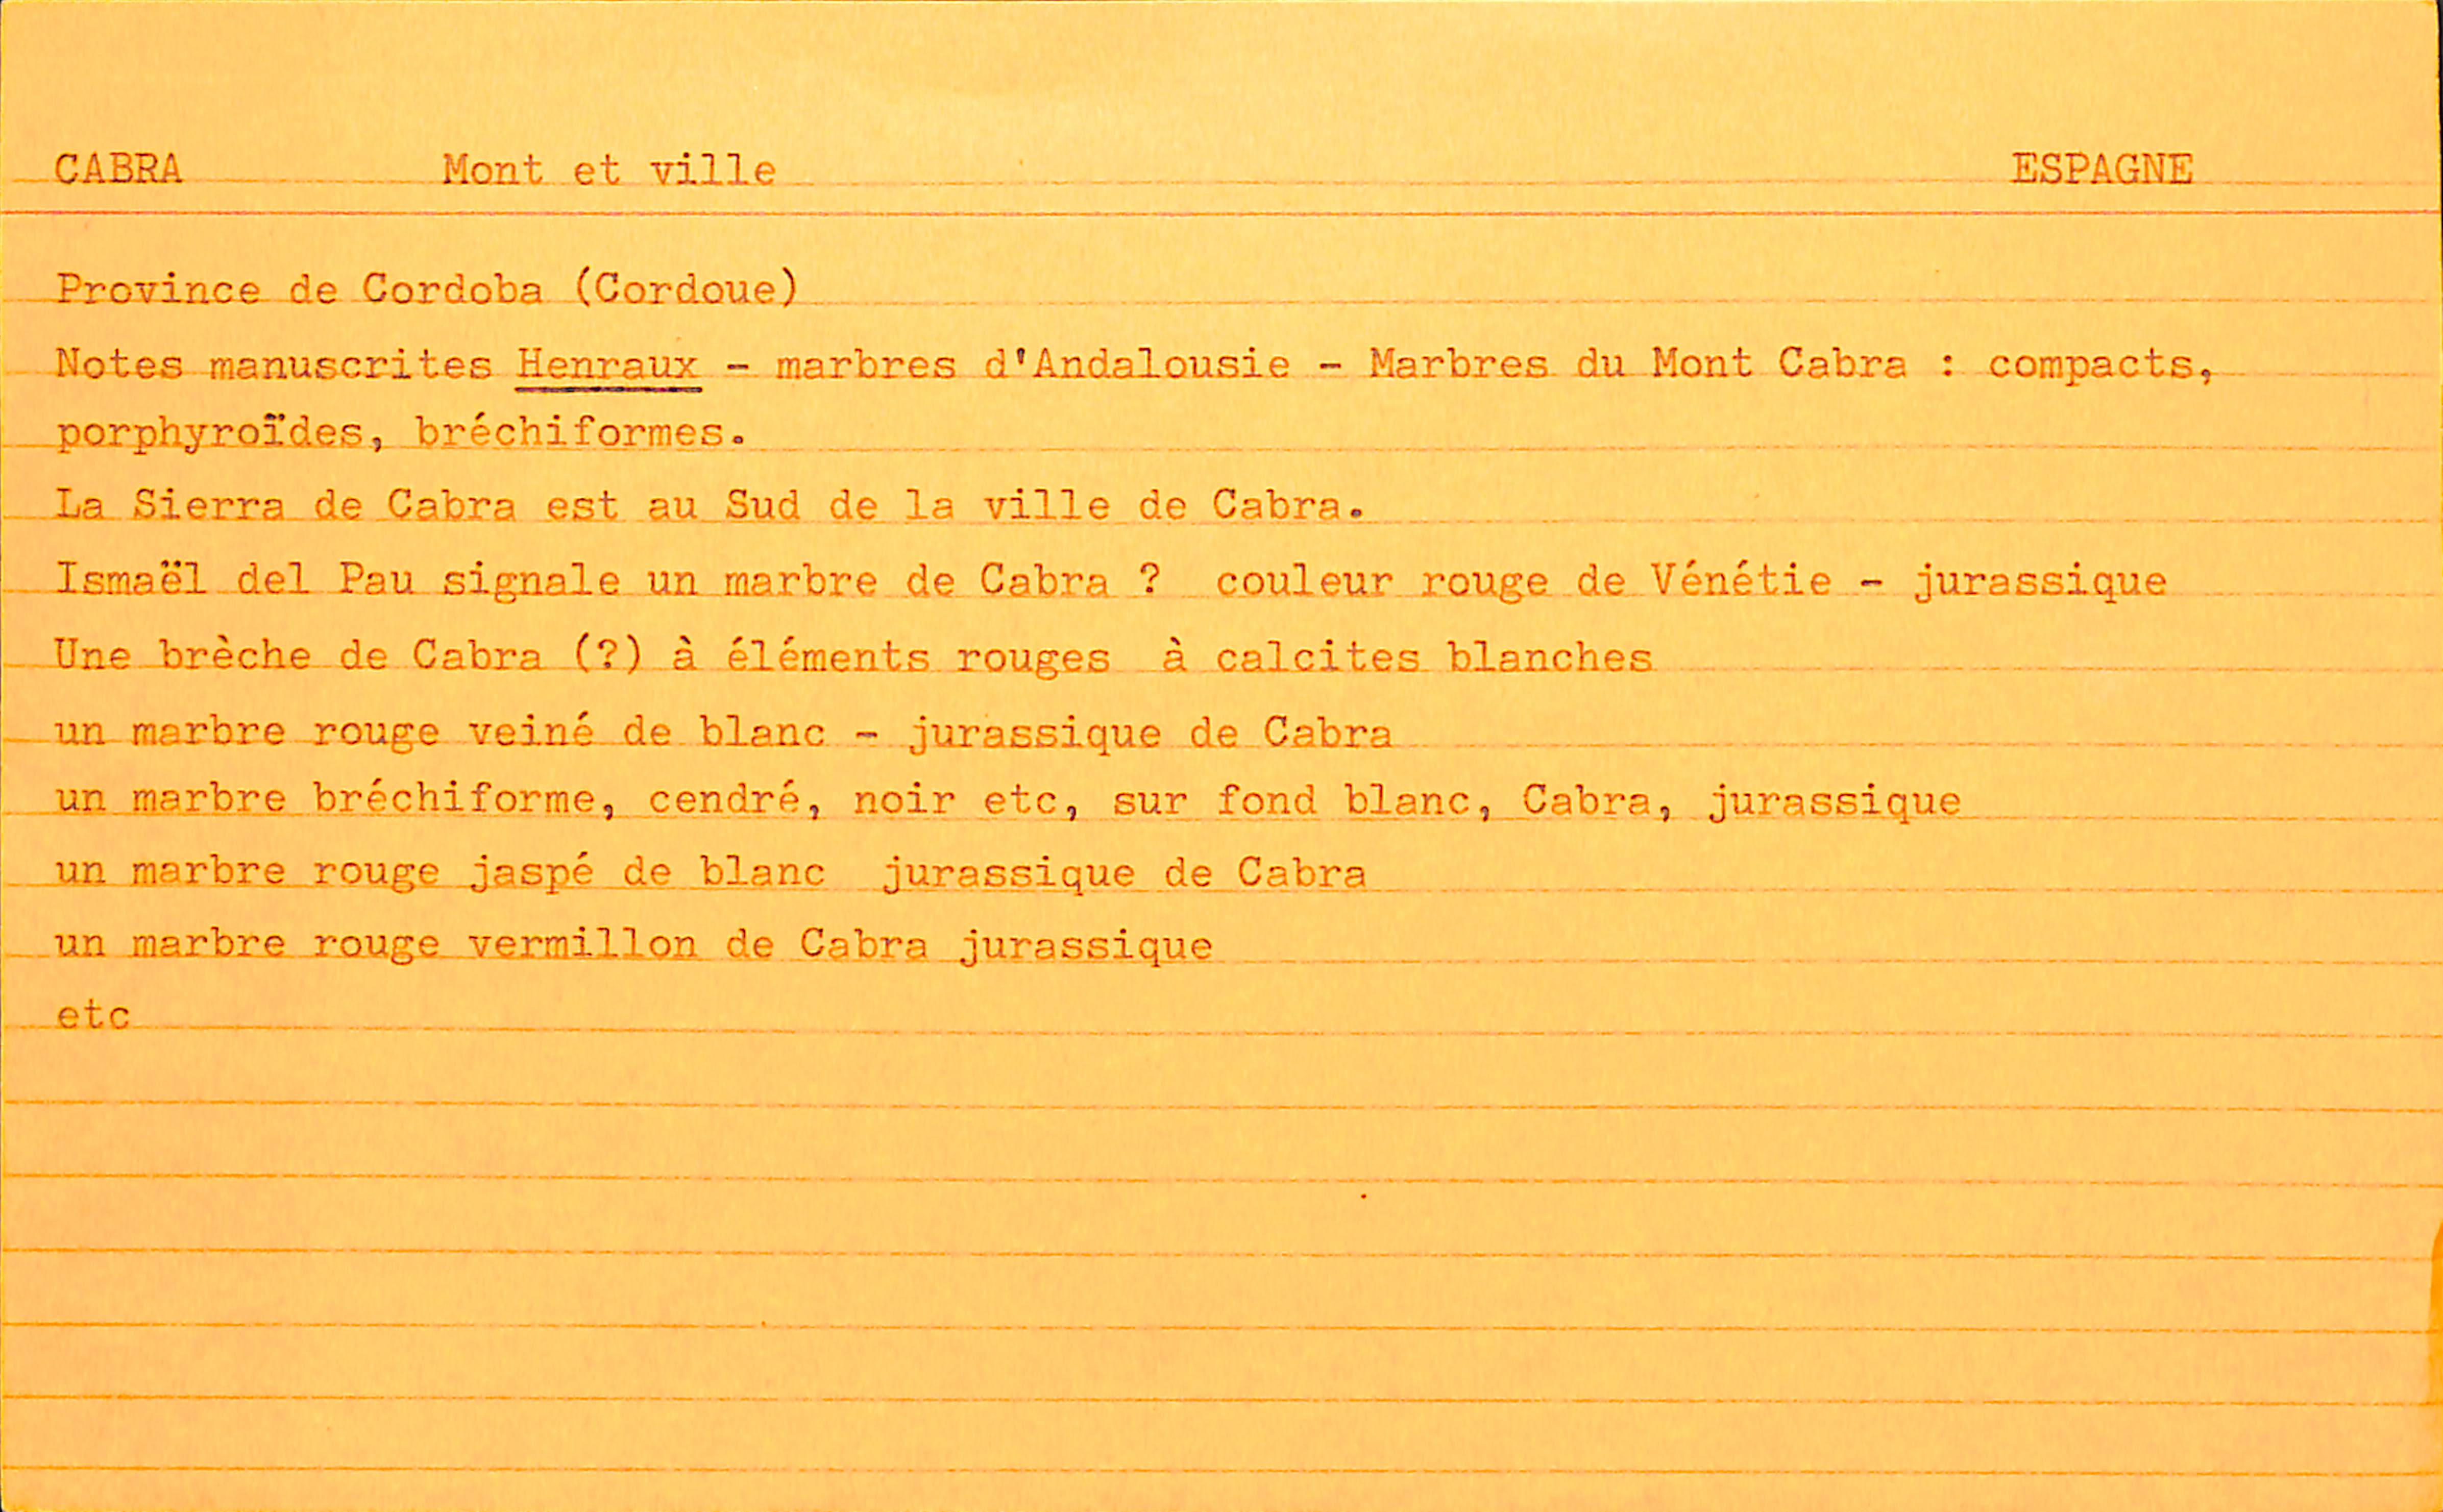 CABRA Mont et ville ESPAGNE
Province de Cordoba (Cordoue)
Notes manuscrites Henraux - marbres d'Andalousie - Marbres du Mont Cabra : compacts,
porphyroïdes, bréchiformes.
La Sierra de Cabra est au Sud de la ville de Cabra.
Ismaël del Pau signale un marbre de Cabra ? couleur rouge de Vénétie - jurassique
Une brèche de Cabra (?) à éléments rouges à calcites blanches
un marbre rouge veiné de blanc - jurassique de Cabra
un marbre bréchiforme, cendré, noir etc, sur fond blanc, Cabra, jurassique
un marbre rouge jaspé de blanc jurassique de Cabra
un marbre rouge vermillon de Cabra jurassique
etc